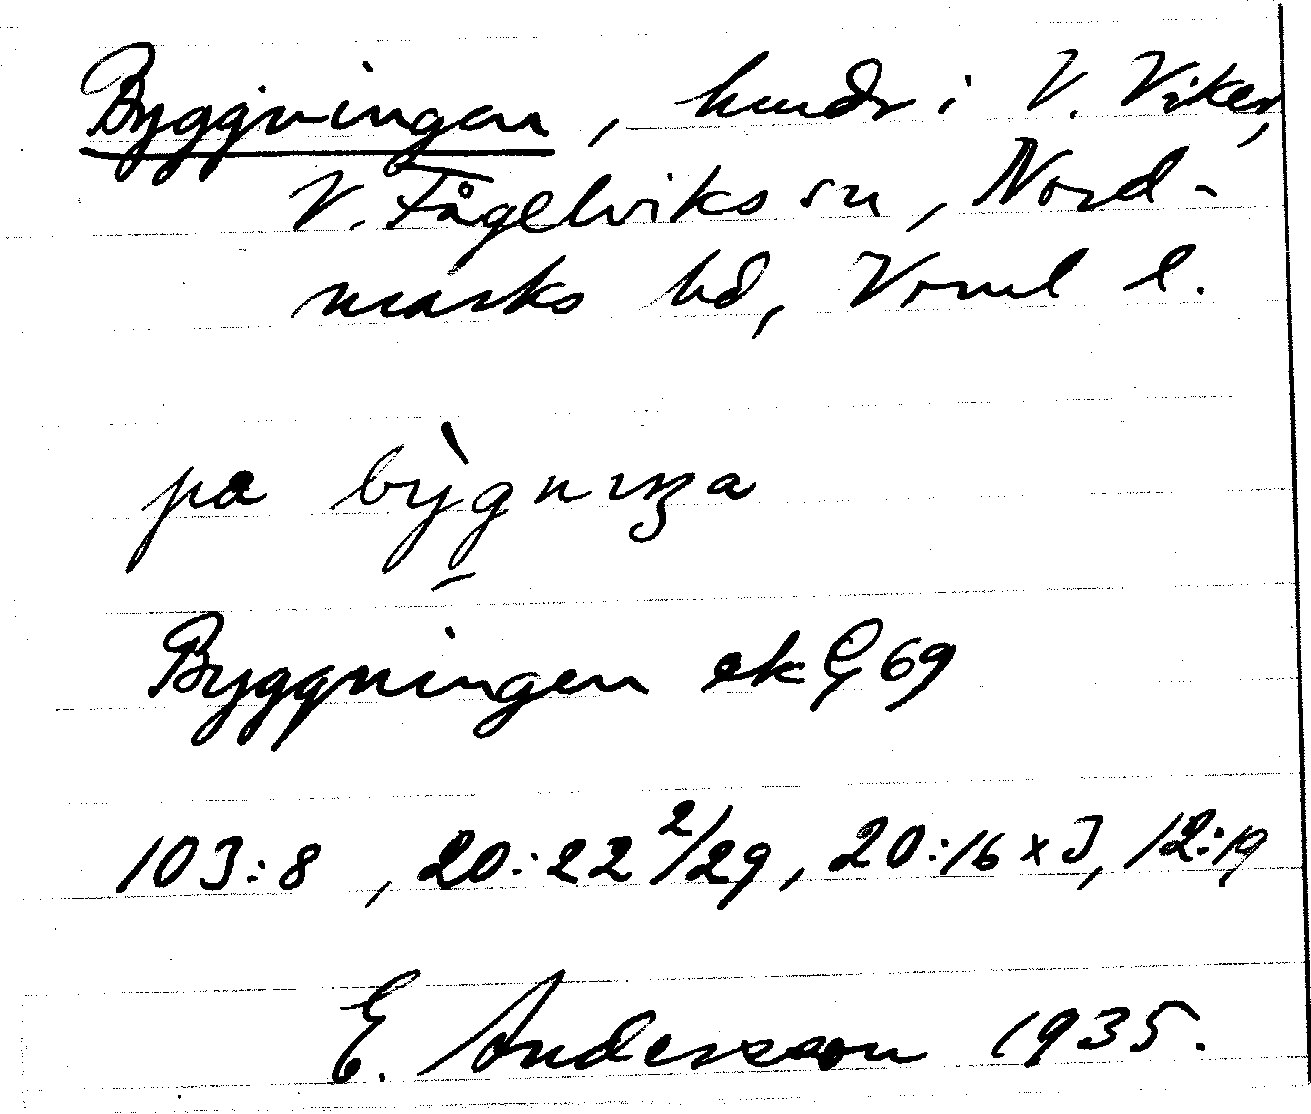 Byggningen, hmdr i V. Viker,
V. Fågelviks sn, Nord-
marks hd, Vrml l.
pa bỳgnıŋa
Byggningen ek G 69
103:8, 20:22 2/29, 20:16 x J, 12:19
E. Andersson 1935.